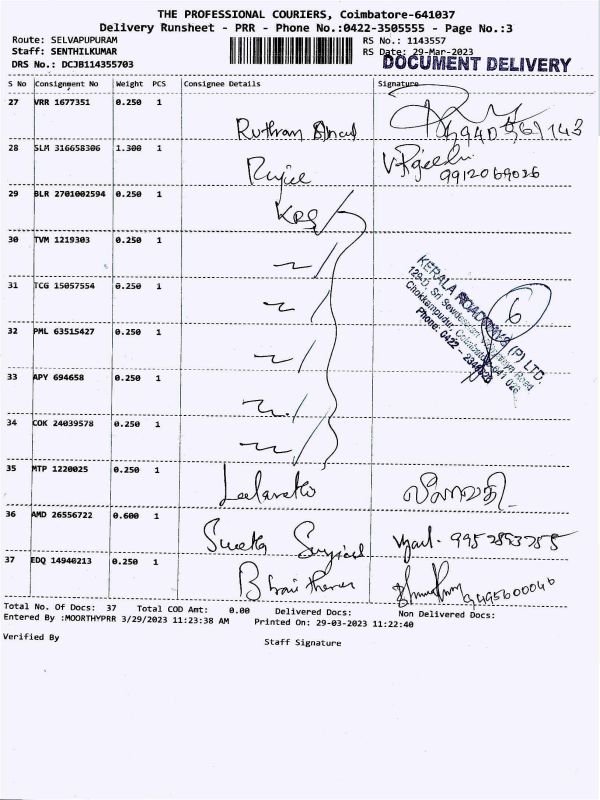 THE PROFESSIONAL COURIERS, Coimbatore-641037
Delivery Runsheet - PRR - Phone No.:0422-3505555 - Page No.:3
Route: SELVAPUPURAM RS No.: 1143557
Staff: SENTHILKUMAR RS Date: 29-Mar-2023
DRS No.: DCJB114355703 DOCUMENT DELIVERY
S No Consignment No Weight PCS Consignee Details Signature
27 VRR 1677351 0.250 1
28 SLM 316658306 1.300 1
9912069026
29 BLR 2701002594 0.250 1
KRS
30 TVM 1219303 0.250 1
31 TCG 15057554 0.250 1
KERALA ROADWAYS (P) LTD.
6
32 PML 63515427 0.250 1
Phone: 0422 -
33 APY 694658 0.250 1
34 COK 24039578 0.250 1
35 MTP 1220025 0.250 1
லீலாவதி
36 AMD 26556722 0.600 1
9952893755
37 EDQ 14940213 0.250 1
Total No. Of Docs: 37 Total COD Amt: 0.00 Delivered Docs: Non Delivered Docs:
Entered By :MOORTHYPRR 3/29/2023 11:23:38 AM Printed On: 29-03-2023 11:22:40
Verified By Staff Signature